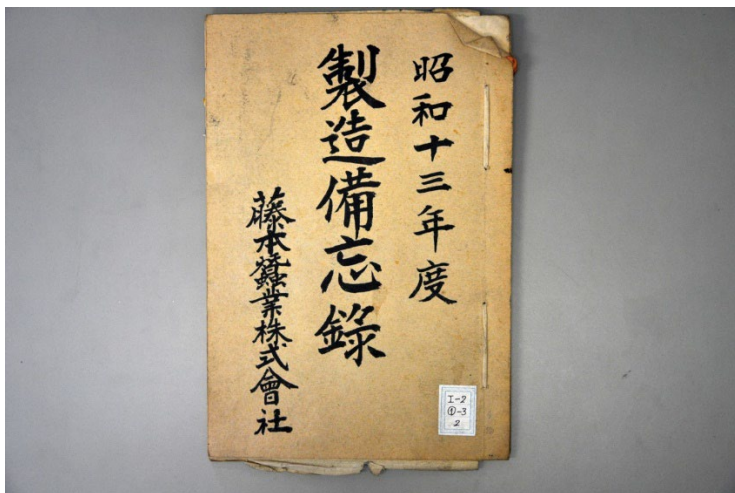 昭和十三年度
製造備忘錄
藤本蠶業株式會社
I-2
①-3
2